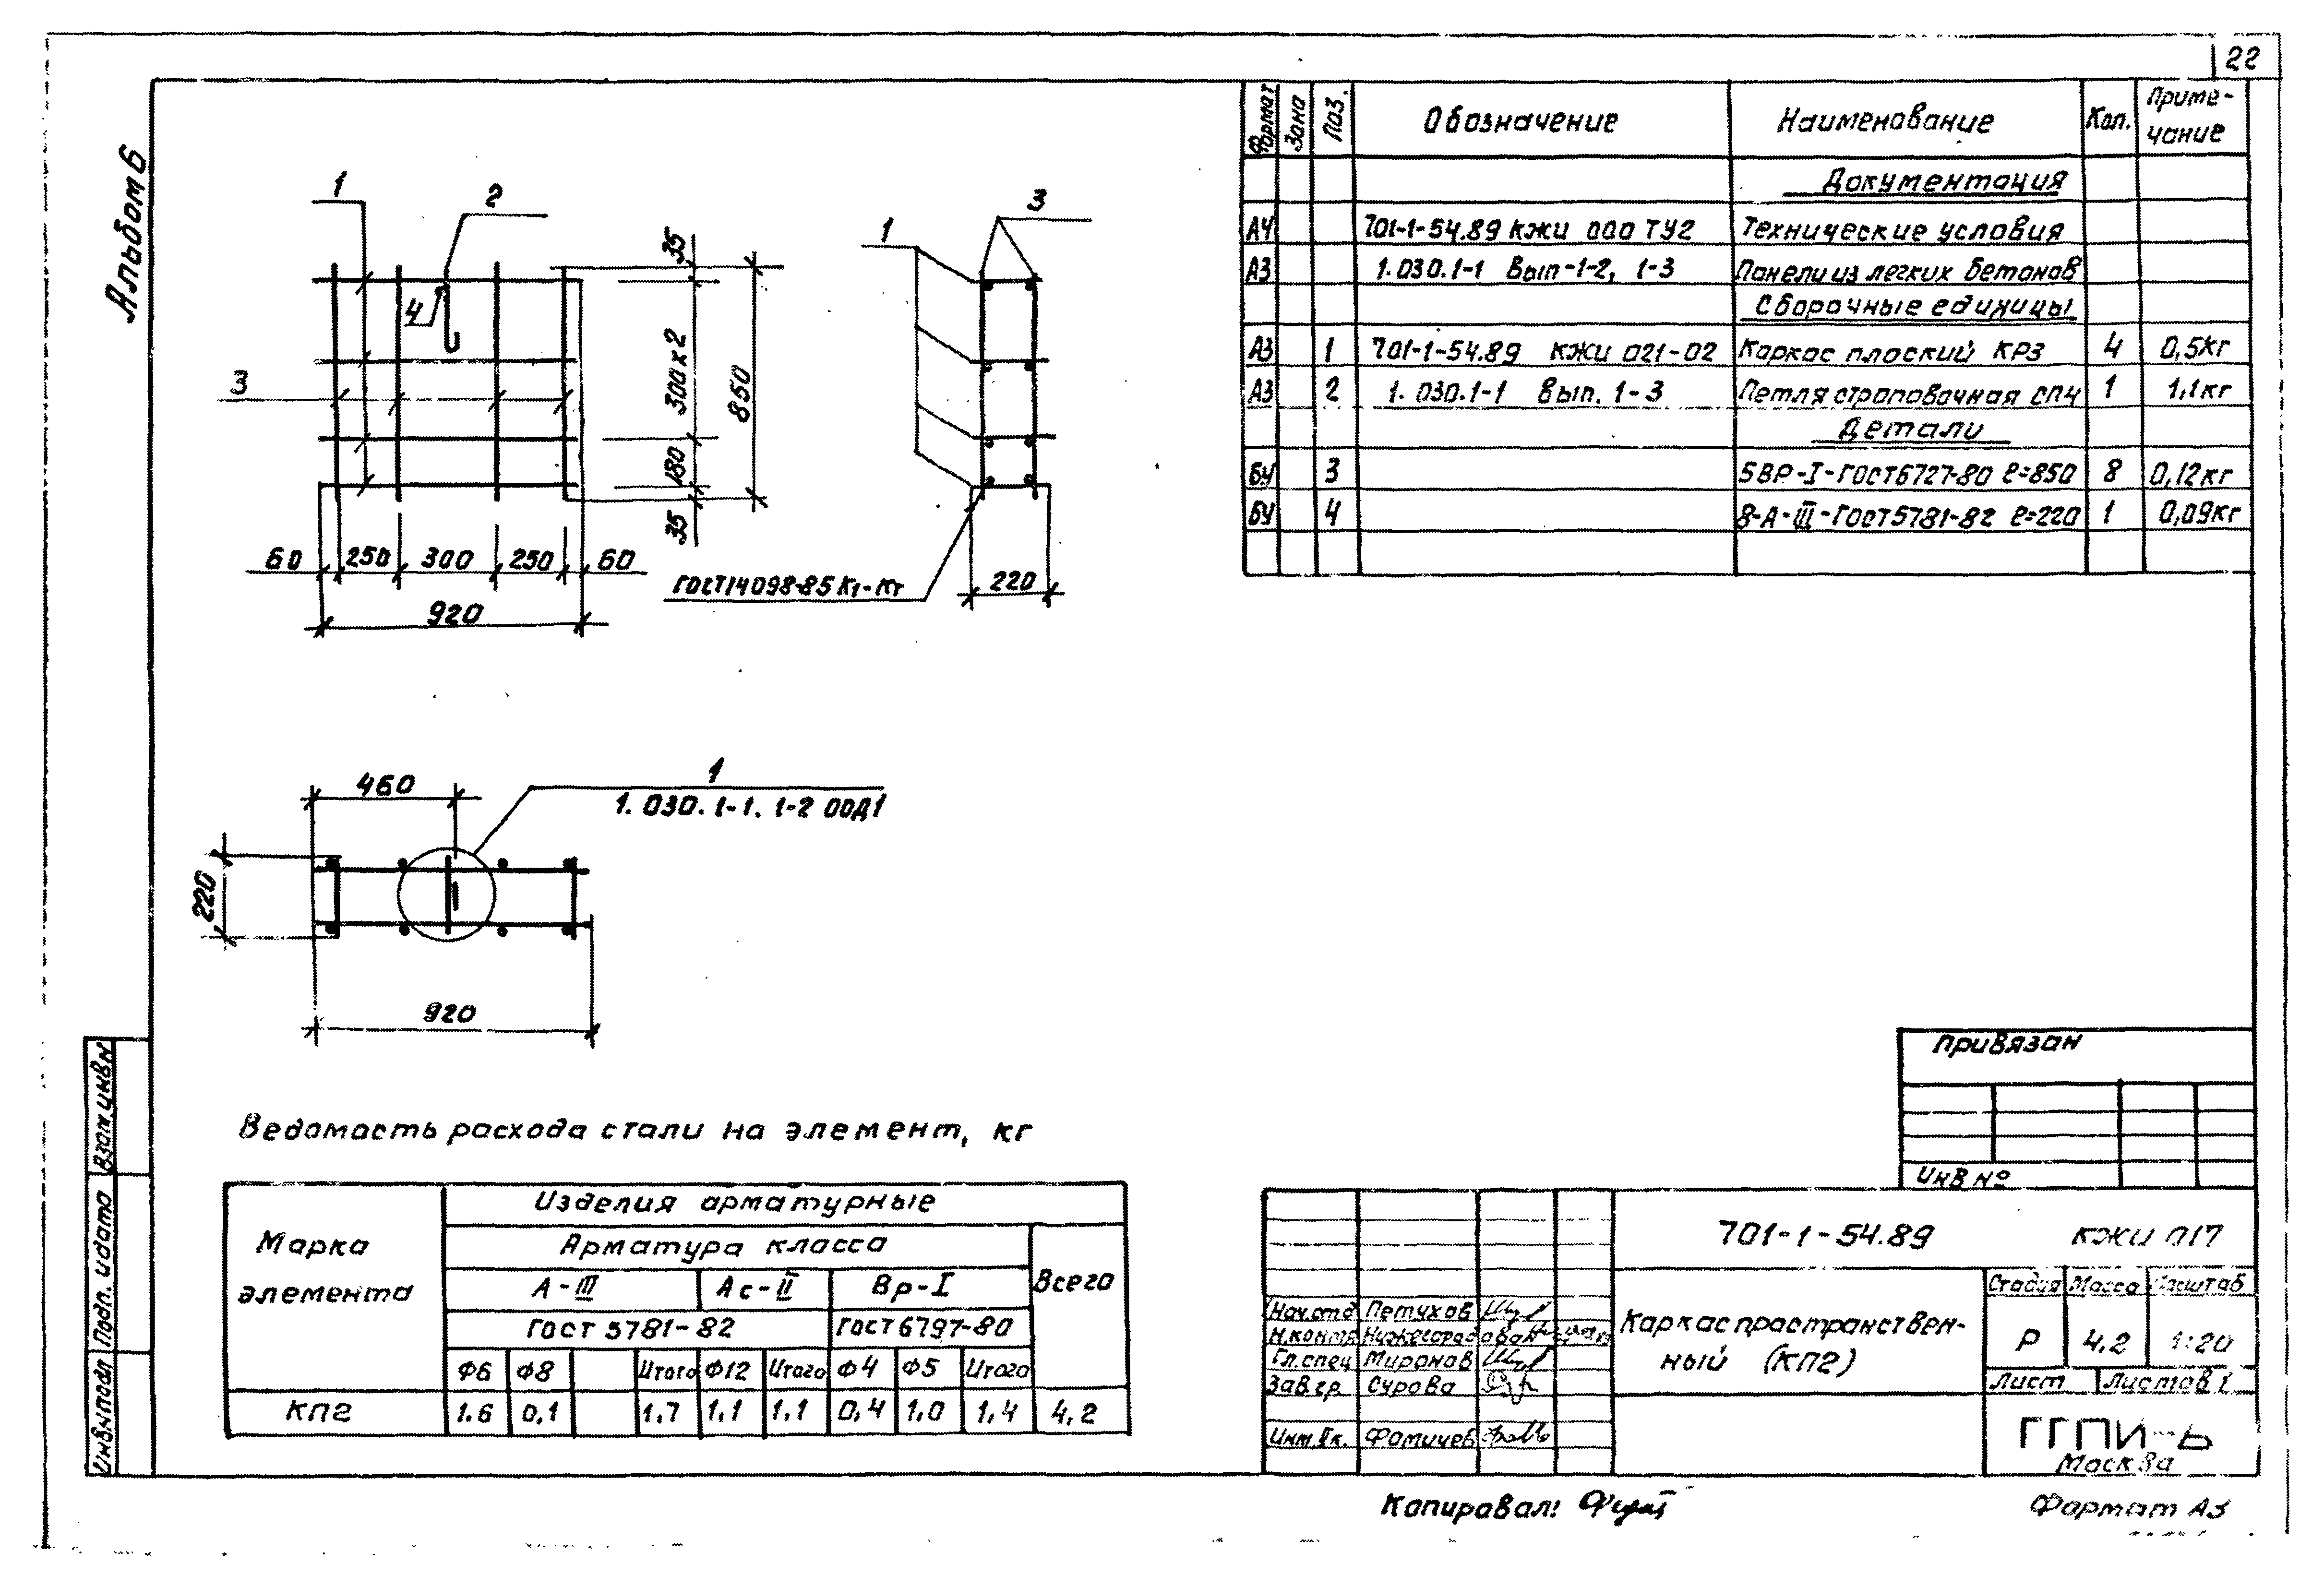 22
Альбом 6
1
2
3
4
35
300x2
180
35
850
60 250 300 250 60
920
1
3
ГОСТ14098-85 К1-Кт
220
460
1
1.030.1-1. 1-2 00Д1
220
920
Формат Зона Поз. Обозначение Наименование Кол. Приме-
чание
Документация
А4 701-1-54.89 КЖИ 000 ТУ2 Технические условия
А3 1.030.1-1 Вып-1-2, 1-3 Панели из легких бетонов
Сборочные единицы
А3 1 701-1-54.89 КЖИ 021-02 Каркас плоский КР3 4 0,5кг
А3 2 1.030.1-1 Вып. 1-3 Петля строповочная СП4 1 1,1кг
Детали
БЧ 3 5ВР-I-ГОСТ6727-80 ℓ=850 8 0,12кг
БЧ 4 8-А-III-ГОСТ5781-82 ℓ=220 1 0,09кг
Ведомость расхода стали на элемент, кг
Марка
элемента
Изделия арматурные
Арматура класса
Всего
А-III Ас-II Вр-I
ГОСТ 5781-82 ГОСТ6797-80
Ф6 Ф8 Итого Ф12 Итого Ф4 Ф5 Итого
КП2 1.6 0,1 1.7 1.1 1.1 0,4 1.0 1,4 4,2
Привязан
Инв №
701-1-54.89 КЖИ 017
Нач.отд Петухов
Н.контр Нижегородова
Гл.спец Миронов
Зав.гр. Сурова
Инж.IIк. Фомичев
Каркас пространствен-
ный (КП2)
Стадия Масса Масштаб
Р 4,2 1:20
Лист Листов 1
ГГПИ-6
Москва
Взам.инв№
Подп. и дата
Инв.№подл
Копировал:
Формат А3